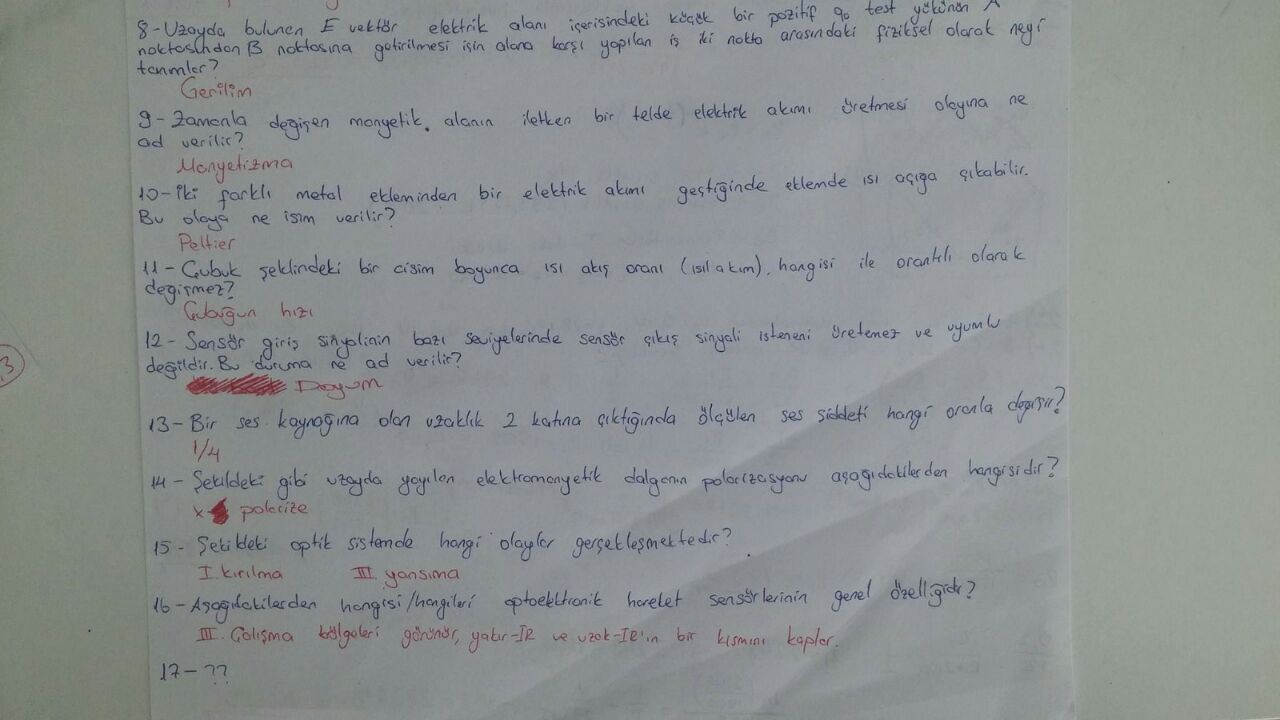 8- Uzayda bulunan E vektör elektrik alanı içerisindeki küçük bir pozitif q₀ test yükünün A
noktasından B noktasına getirilmesi için alana karşı yapılan iş iki nokta arasındaki fiziksel olarak neyi
tanımlar?
Gerilim
9- Zamanla değişen manyetik alanın iletken bir telde elektrik akımı üretmesi olayına ne
ad verilir?
Manyetizma
10- İki farklı metal ekleminden bir elektrik akımı geçtiğinde eklemde ısı açığa çıkabilir.
Bu olaya ne isim verilir?
Peltier
11- Çubuk şeklindeki bir cisim boyunca ısı akış oranı (ısıl akım), hangisi ile orantılı olarak
değişmez?
Çubuğun hızı
12- Sensör giriş sinyalinin bazı seviyelerinde sensör çıkış sinyali isteneni üretemez ve uyumlu
değildir. Bu duruma ne ad verilir?
Doyum
3
13- Bir ses kaynağına olan uzaklık 2 katına çıktığında ölçülen ses şiddeti hangi oranla değişir?
1/4
14- Şekildeki gibi uzayda yayılan elektromanyetik dalganın polarizasyonu aşağıdakilerden hangisidir?
x polarize
15- Şekildeki optik sistemde hangi olaylar gerçekleşmektedir?
I. kırılma III. yansıma
16- Aşağıdakilerden hangisi/hangileri optoelktronik hareket sensörlerinin genel özelliğidir?
III. Çalışma bölgeleri görünür, yakın-IR ve uzak-IR'ın bir kısmını kapler.
17- ??